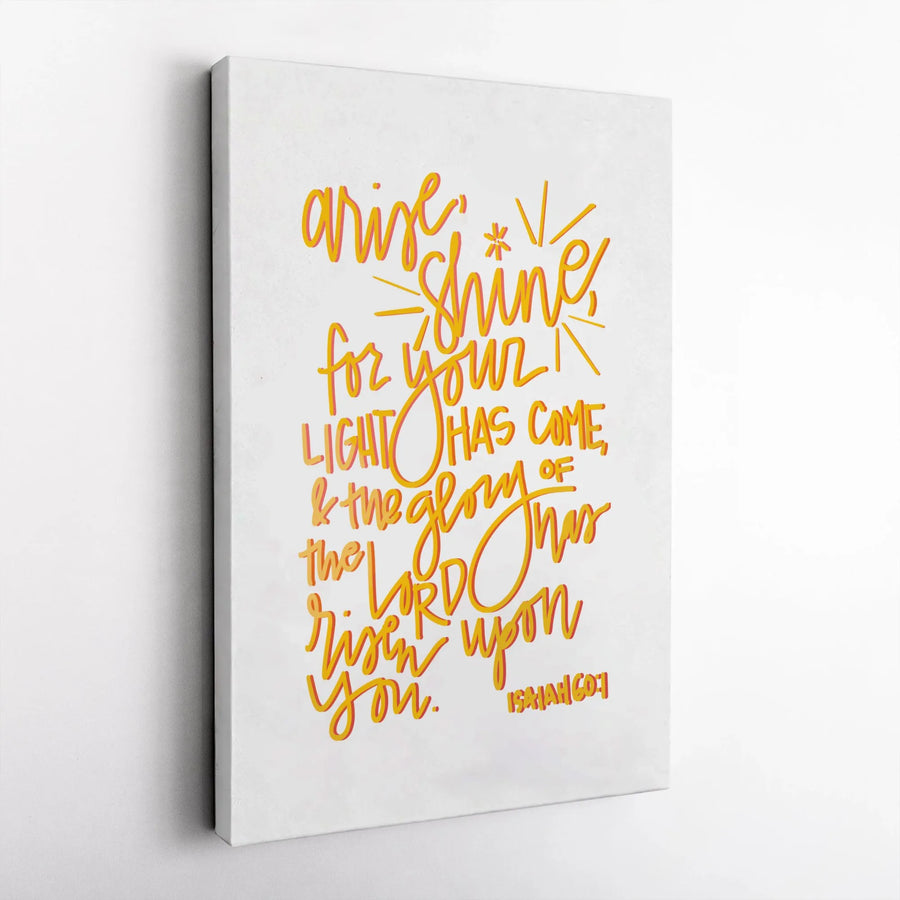 arise,
shine,
for your
LIGHT HAS COME,
& the glory OF
the LORD has
risen upon
you.
ISAIAH 60:1